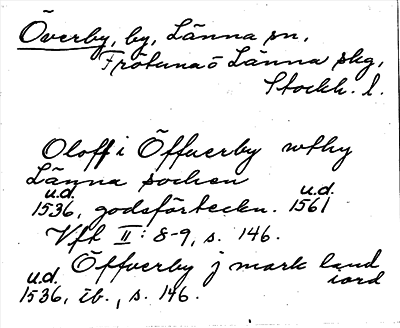 Överby, by, Länna sn,
Frötuna o Länna skg,
Stockh. l.
Oloff i Öffuerby wthy
Länna sochen
u.d. u.d.
1536, godsförteckn. 1561
Vfk II: 8-9, s. 146.
Öffuerby j mark land
u.d. iord
1536, ib., s. 146.